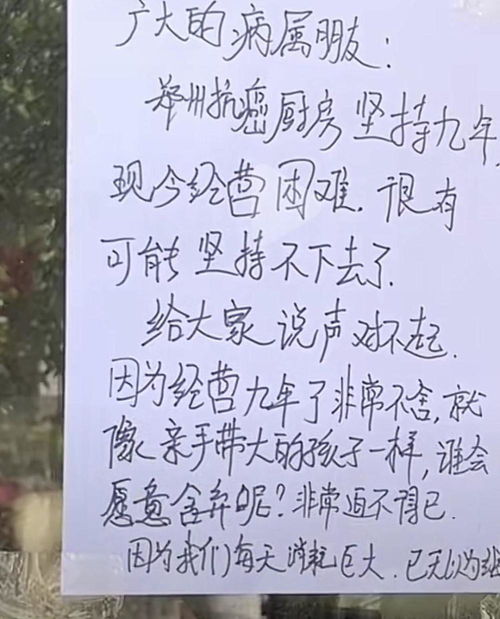 广大的病属朋友：
郑州抗癌厨房坚持九年
现今经营困难.很有
可能坚持不下去了.
给大家说声对不起.
因为经营九年了非常不舍,就
像亲手带大的孩子一样,谁会
愿意舍弃呢?非常迫不得已.
因为我们每天消耗巨大.已无以为继